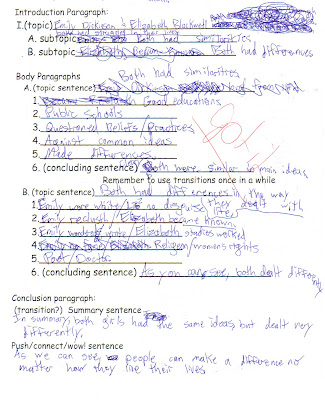 Introduction Paragraph:
I.(topic) Emily Dickinson & Elizabeth Blackwell
both had struggled in their lives
A. subtopic Both had similarities
B. subtopic Both had differences
Body Paragraphs
Both had similarities
A.(topic sentence)
1. Good educations
2. Public Schools
3. Questioned Beliefs/Practices
4. Against common ideas
5. Made differences
6. (concluding sentence) Both were similar in main ideas
Remember to use transitions once in a while
B. (topic sentence) Both had differences in the way
they dealt with
lifes
1. Emily wore white/
2. Emily reclush/ Elizabeth became known
3. Emily wrote/ Elizabeth studies worked
4. Religion/womens rights
5. Poet/Doctor
6. (concluding sentence) As you can see, both dealt differently
Conclusion paragraph:
(transition?) Summary sentence
In summary, both girls had the same ideas, but dealt very
differently.
Push/connect/wow! sentence
As we can see, people can make a difference no
matter how they live their lives